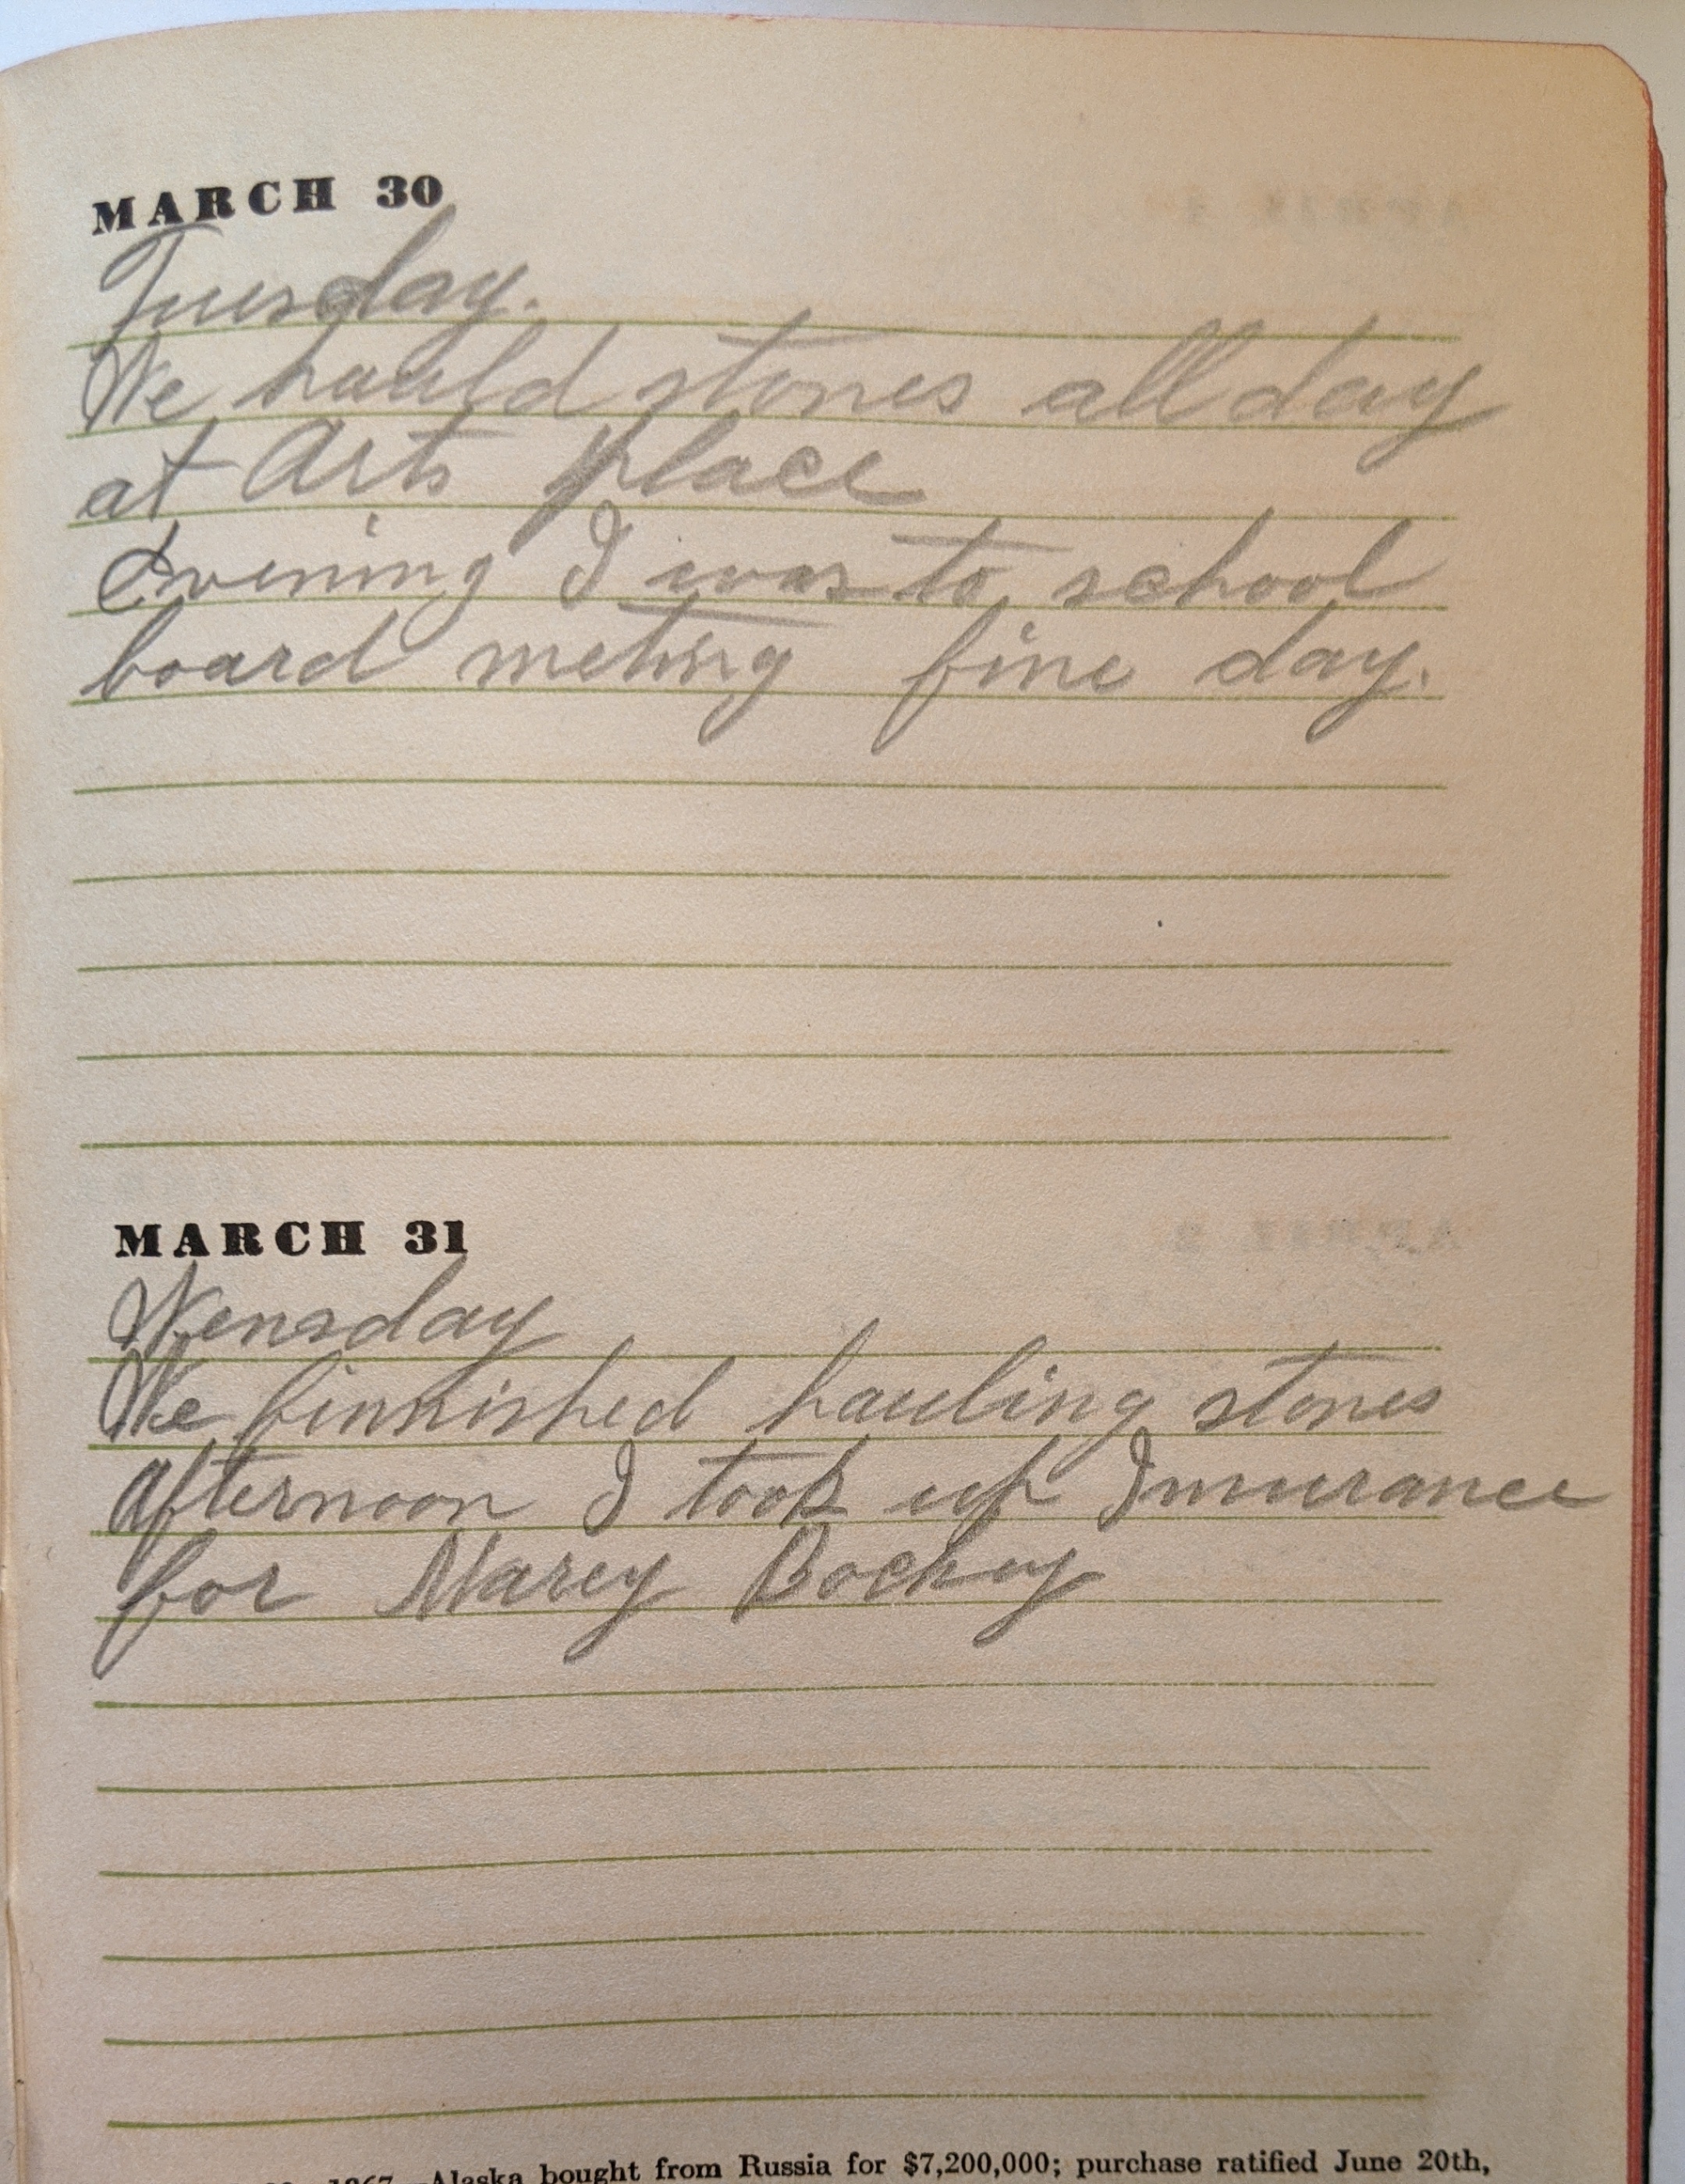 MARCH 30
Tuesday.
We hauld stones all day
at Arts place
Evening I was to school
board meting fine day.
MARCH 31
Wensday
We finnished hauling stones
afternoon I took up Insurance
for Marey Bochey
1867 Alaska bought from Russia for $7,200,000; purchase ratified June 20th,